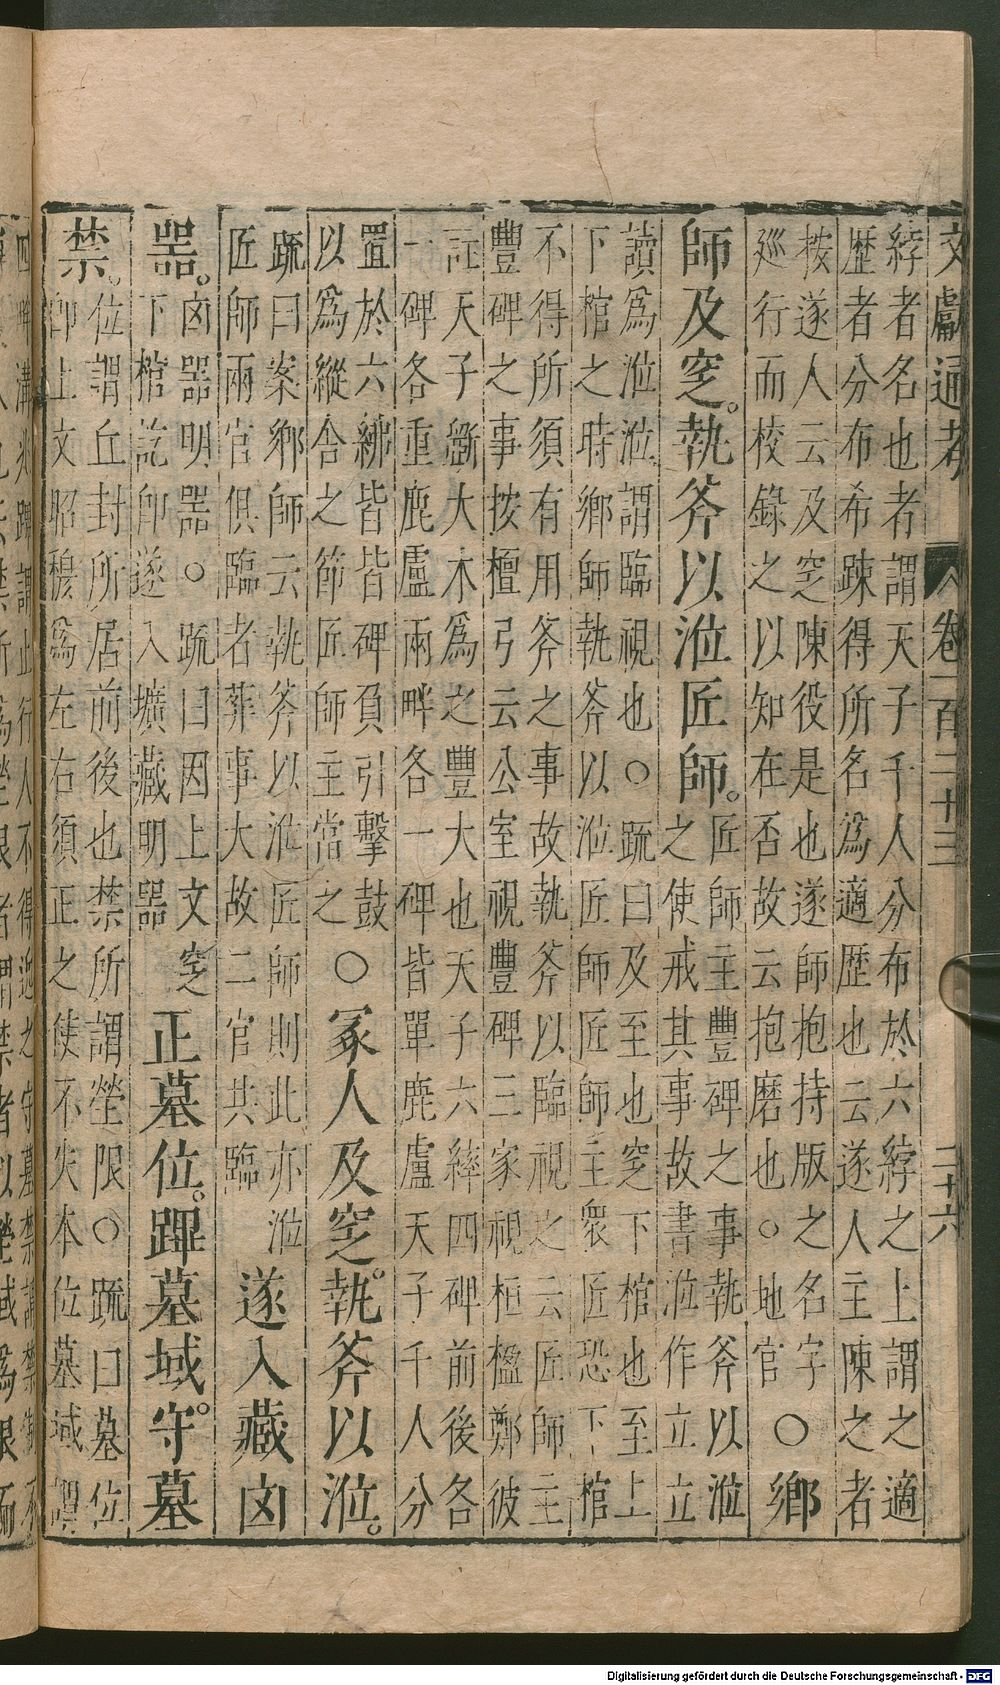 文獻通考 卷一百二十三 二十六
綍者名也者謂天子千人分布於六綍之上謂之適
歷者分布希踈得所名爲適歷也云遂人主陳之者
按遂人云及窆陳役是也遂師抱持版之名字
廵行而校錄之以知在否故云抱磨也。地官
〇鄉
師及窆。執斧以涖匠師。
匠師主豐碑之事執斧以涖
之使戒其事故書涖作立立
讀爲涖涖謂臨視也〇疏曰及至也窆下棺也至上
下棺之時鄉師執斧以涖匠師匠師主衆匠恐下棺
不得所須有用斧之事故執斧以臨視之云匠師主
豐碑之事按檀弓云公室視豐碑三家視桓楹鄭彼
註天子斵大木爲之豐大也天子六繂四碑前後各
一碑各重鹿盧兩畔各一碑皆單鹿盧天子千人分
置於六紼皆皆碑負引擊鼓
以爲縱舍之節匠師主當之
〇冢人及窆。執斧以涖。
疏曰案鄉師云執斧以涖匠師則此亦涖
匠師兩官俱臨者葬事大故二官共臨
遂入藏凶
噐。
凶噐明噐〇疏曰因上文窆
下棺訖卽遂入壙藏明噐
正墓位。蹕墓域。守墓
禁。
位謂丘封所居前後也禁所謂塋限〇疏曰墓位
卽上文昭穆爲左右須正之使不失本位墓域謂
Digitalisierung gefördert durch die Deutsche Forschungsgemeinschaft - DFG